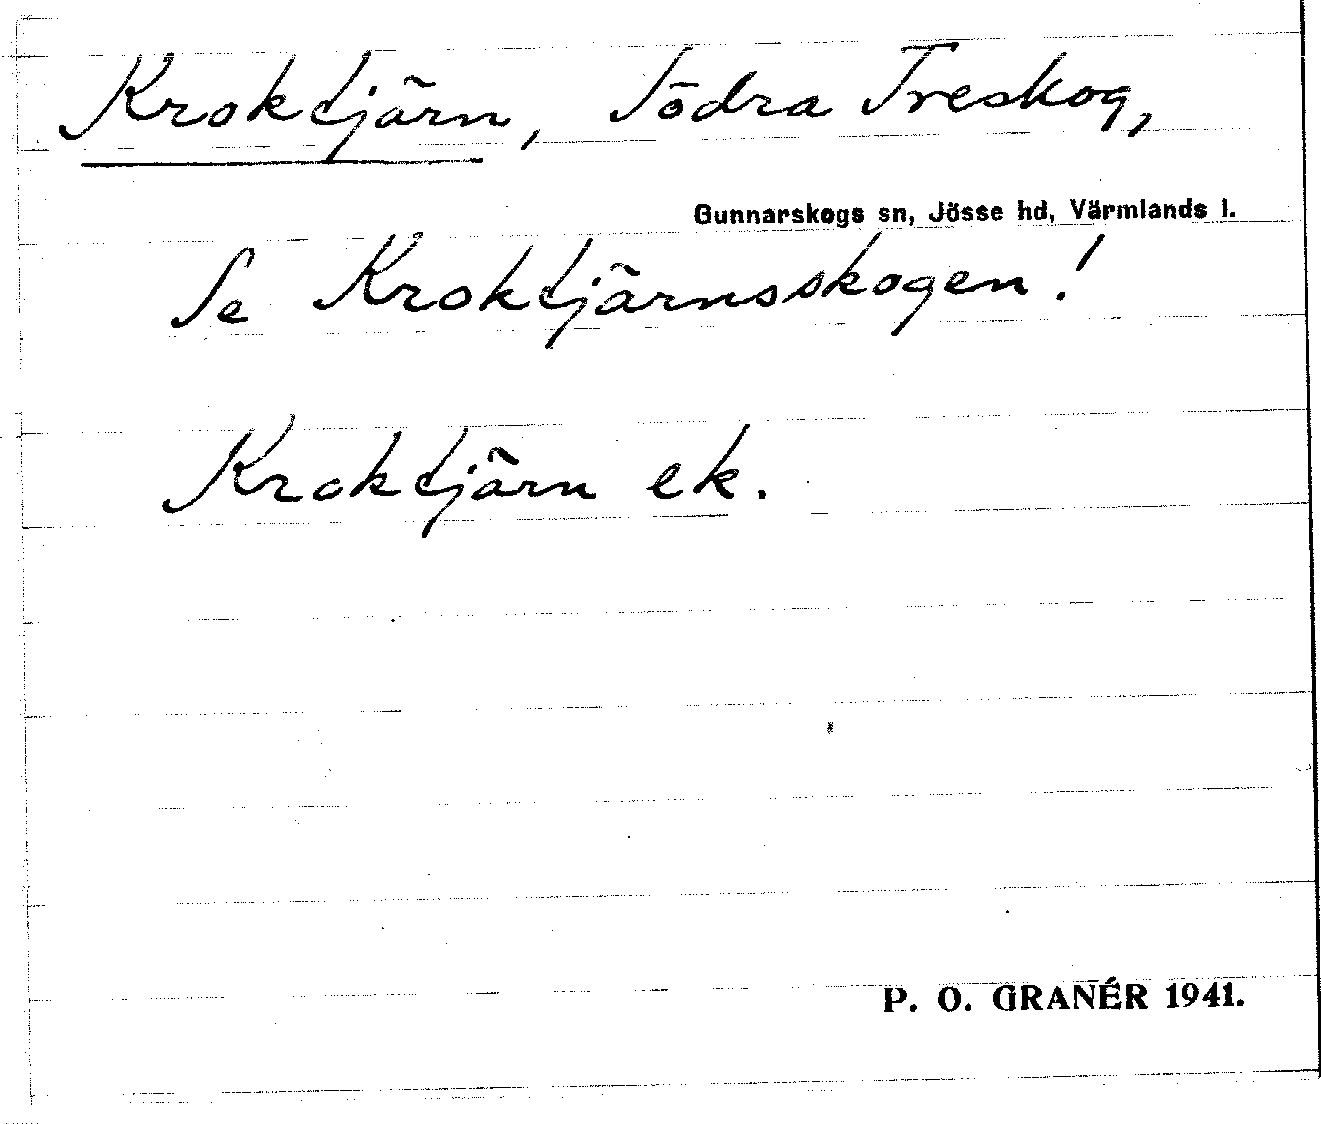 Kroktjärn, Södra Treskog,
Gunnarskogs sn, Jösse hd, Värmlands l.
Se Kroktjärnsskogen!
Kroktjärn ek.
P. O. GRANÉR 1941.